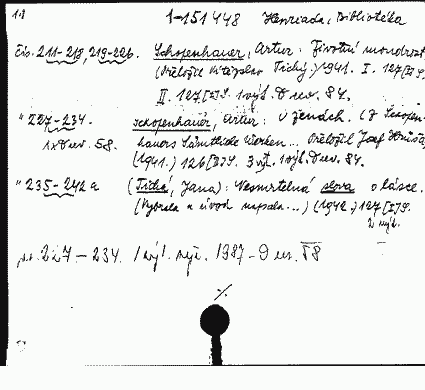 1-151448 Henriada, Bibliotéka
Čís. 211-218, 219-226. Schopenhauer, Artur: Životní moudrost.
(Přeložil Vítězslav Tichý.) 1941. I. 127 [I] S.
II. 127 [I] S. 1 výt. D uv. 84.
" 227-234. Schopenhauer, Artur: O ženách. (Z Schopen-
1x D uv. 58. hauers Sämtliche Werken... Přeložil Josef
(1941.) 126 [II] S. 3 výt. 1 výt. D uv. 84.
" 235-242 a (Tichá, Jana): Nesmrtelná slova o lásce.
(Vybrala a úvod napsala...) (1942.) 127 [I] S.
2 výt.
227-234. 1 výt. 1987 - D uv. 58